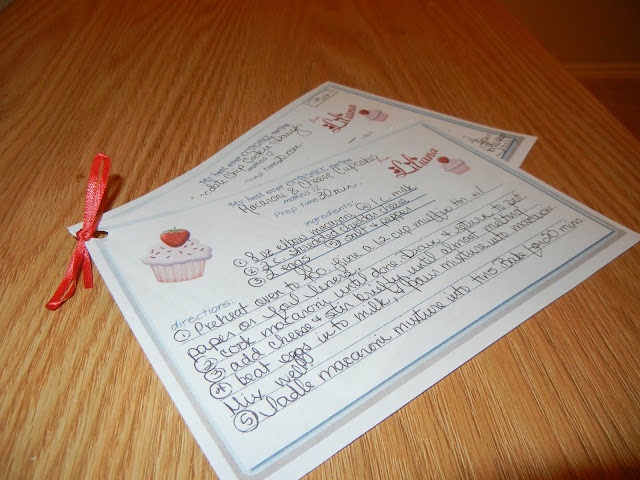 My best ever CUPCAKE recipe
Choc Chip Cookie Dough
makes 12
prep time 20 min
from
Liliana
My best ever CUPCAKE recipe
Macaroni & Cheese Cupcakes
makes 12
Prep time: 30 min
from
Liliana
ingredients:
① 8 oz elbow macaroni ④ 1 c. milk
② 2 C shredded cheddar cheese
③ 2 eggs ⑤ salt & pepper
directions:
① Preheat oven to 350. Line a 12 cup muffin tin w/
paper or foil liners
② cook macaroni until done. Drain & return to pot
③ add cheese & stir briefly until almost melting
④ beat eggs into milk, pour mixture into macaroni
Mix well
⑤ Ladle macaroni mixture into tins Bake for 30 mins